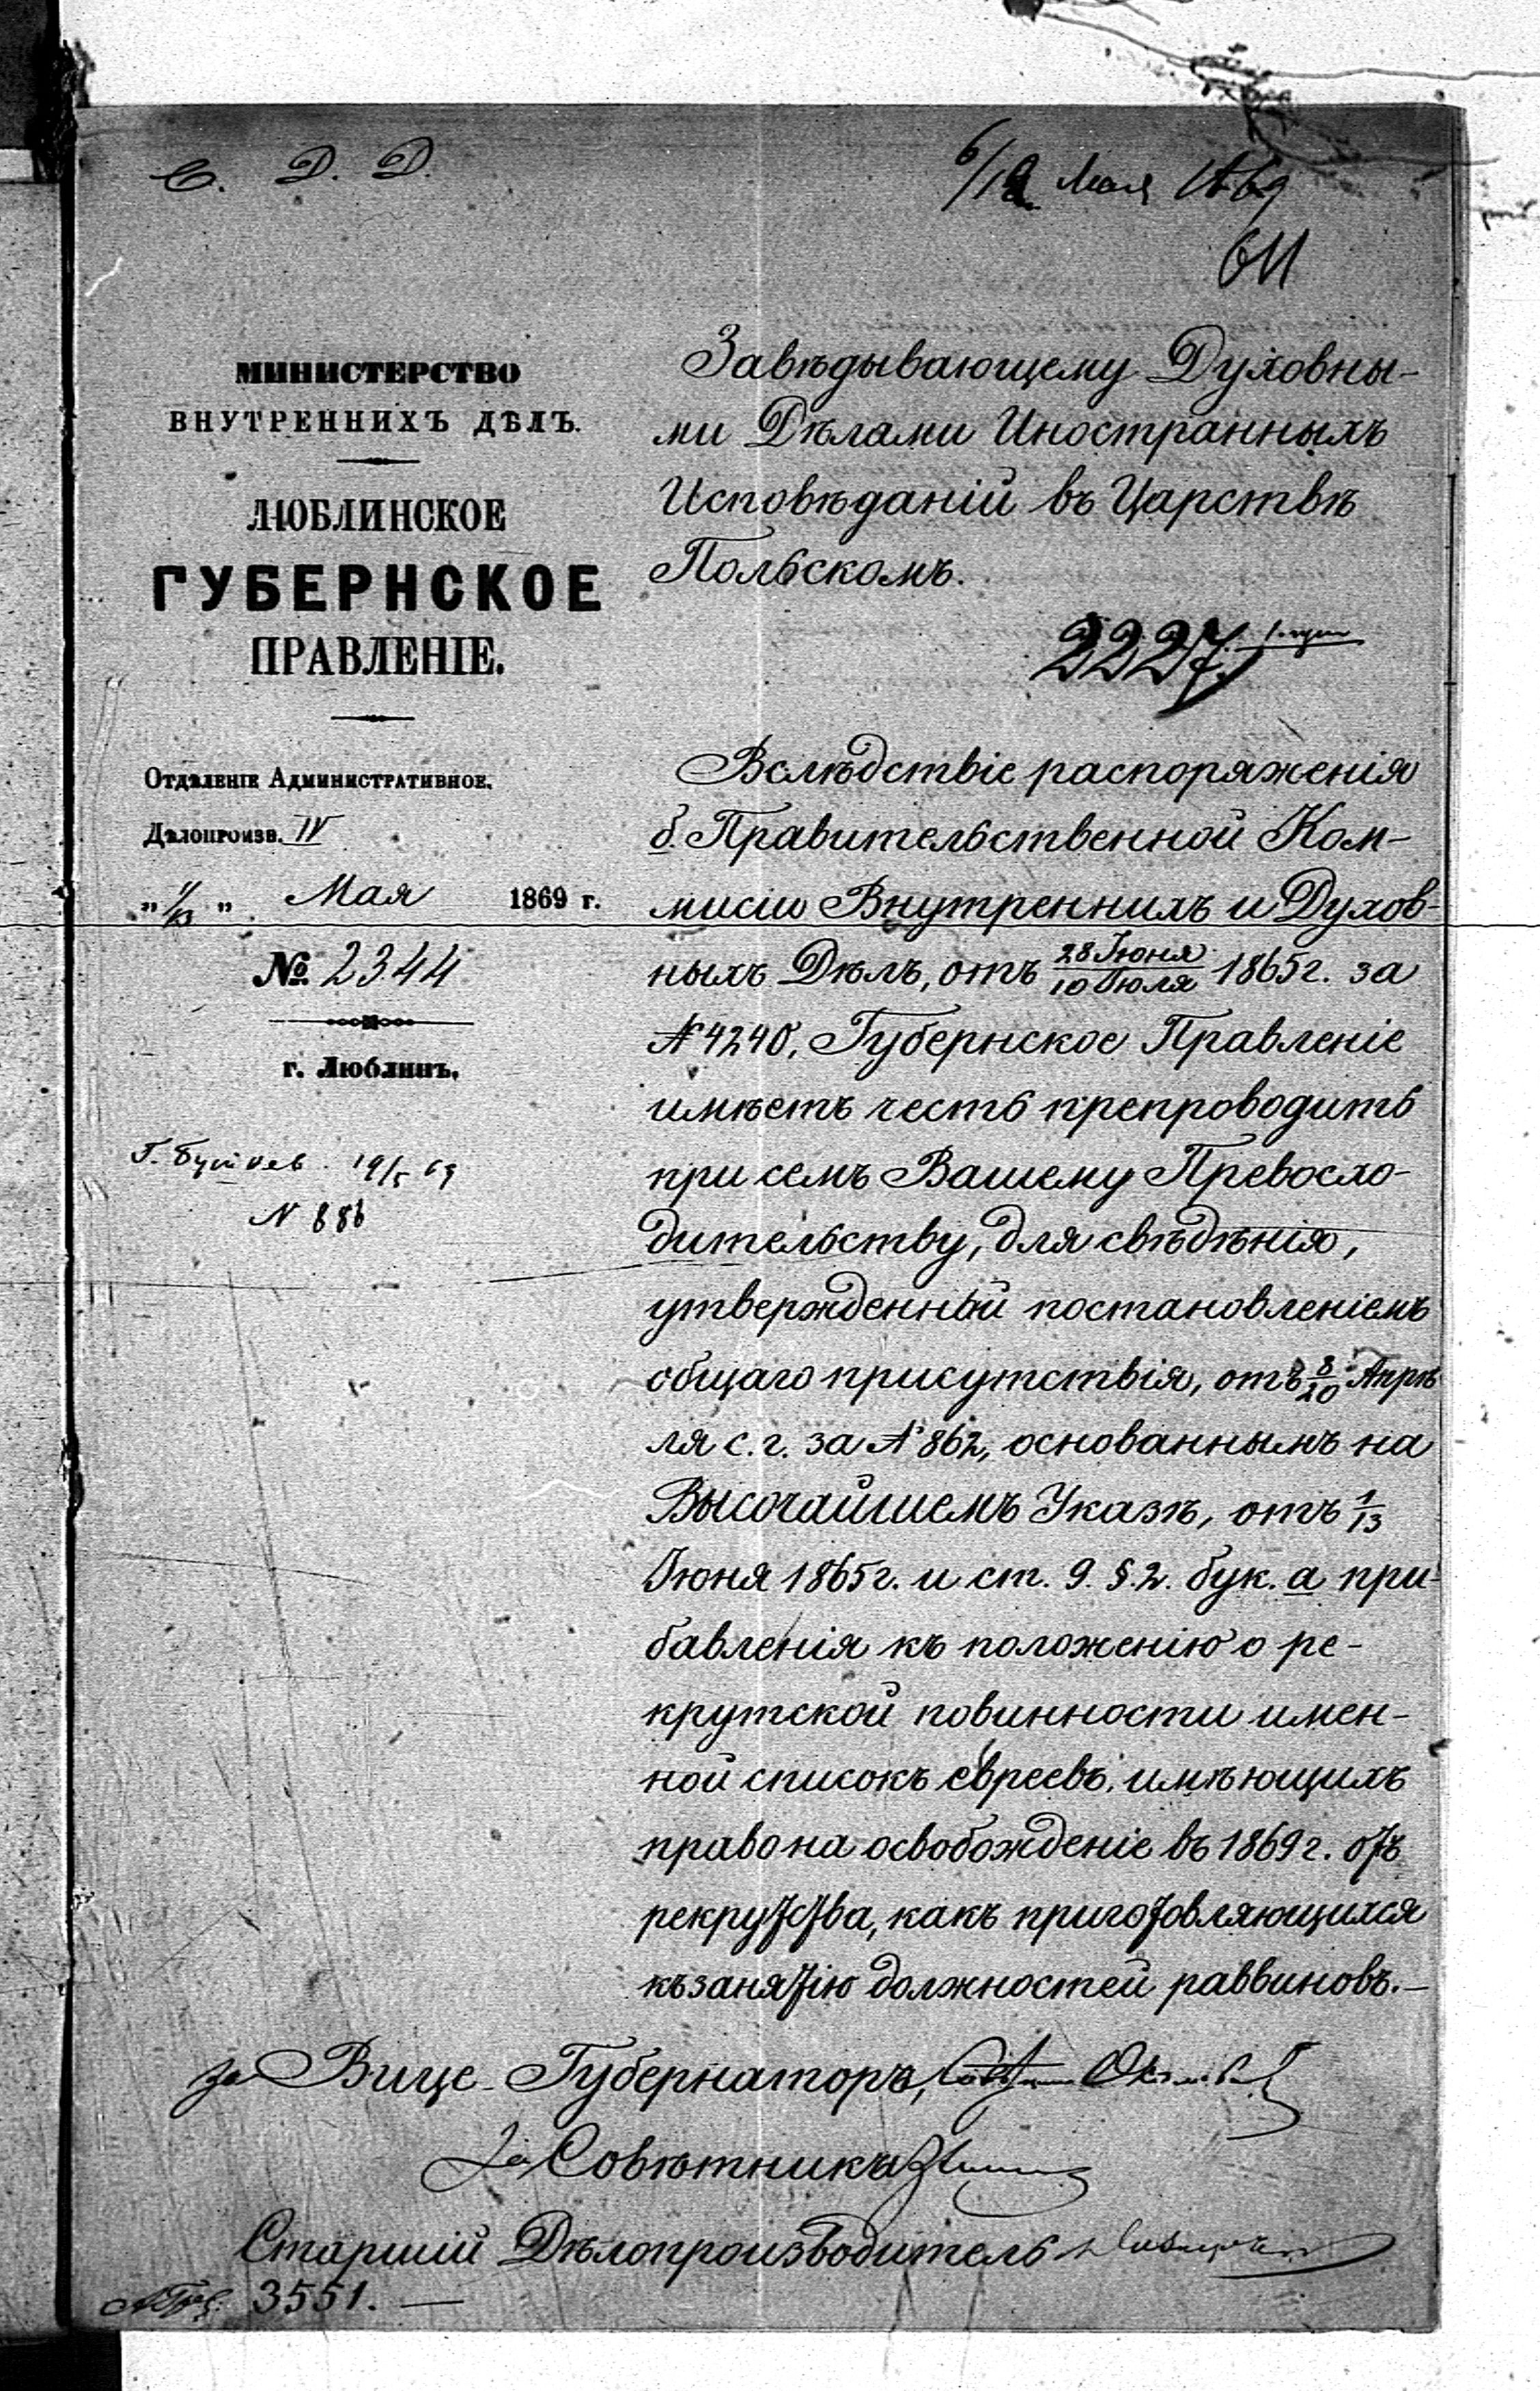 С. Д. Д.
Мая 1869
611
МИНИСТЕРСТВО
ВНУТРЕННИХЪ ДѢЛЪ.
ЛЮБЛИНСКОЕ
ГУБЕРНСКОЕ
ПРАВЛЕНІЕ.
Отдѣленіе Административное.
Дѣлопроизв. IV
„ 1/13 „ Мая 1869 г.
№ 2344
г. Люблинъ.
19/5 69
N 886
Завѣдывающему Духовны-
ми Дѣлами Иностранныхъ
Исповѣданій въ Царствѣ
Польскомъ.
2227
Вслѣдствіе распоряженія
б. Правительственной Ком-
мисіи Внутреннихъ и Духов-
ныхъ Дѣлъ, отъ 28 Іюня/10 Іюля 1865 г. за
N 4240, Губернское Правленіе
имѣетъ честь препроводить
при семъ Вашему Превосхо-
дительству, для свѣдѣнія,
утвержденный постановленіемъ
общаго присутствія, отъ 8/20 Апрѣ
ля с. г. за N 862, основаннымъ на
Высочайшемъ Указѣ, отъ 1/13
Іюня 1865 г. и ст. 9. §. 2. бук. а при-
бавленія къ положенію о ре-
крутской повинности имен-
ной списокъ евреевъ, имѣющихъ
право на освобожденіе въ 1869 г. отъ
рекрутства, какъ приготовляющихся
къ занятію должностей раввиновъ.—
за Вице-Губернатора,
За Совѣтника
Старшій Дѣлопроизводитель
3551. —